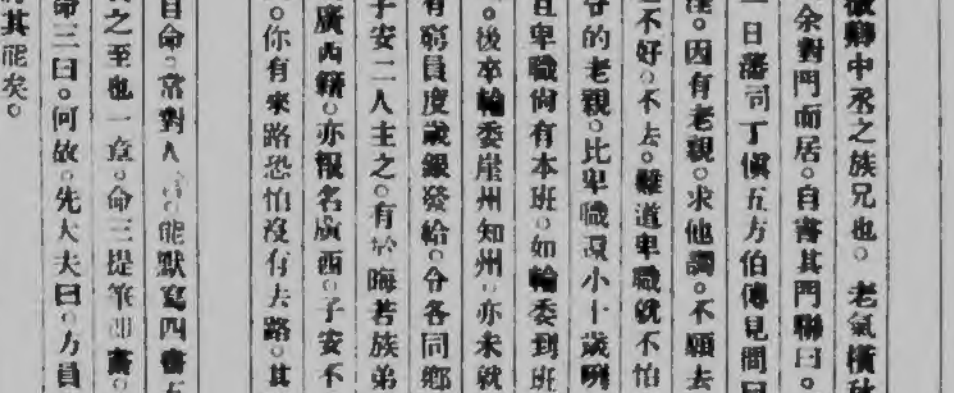 中丞之族兄也。老氣橫秋
余對門而居。自書其門聯曰。
一日藩司丁愼五方伯傳見問曰
。因有老親。求他調。不願去
不好。不去。難道卑職就不怕
的老親。比卑職還小十歲咧
且卑職尙有本班。如輪委到班
。後本輪委崖州知州。亦未就
有窮員度歲銀發給。令各同鄉
子安二人主之。有於晦若族弟
廣西籍。亦報名廣西。子安不
。你有來路恐怕沒有去路。其
自命。常對人。能默寫四書
之至也一章。命三提筆卽書。
命三曰。何故。先大夫曰。方員
其能矣。